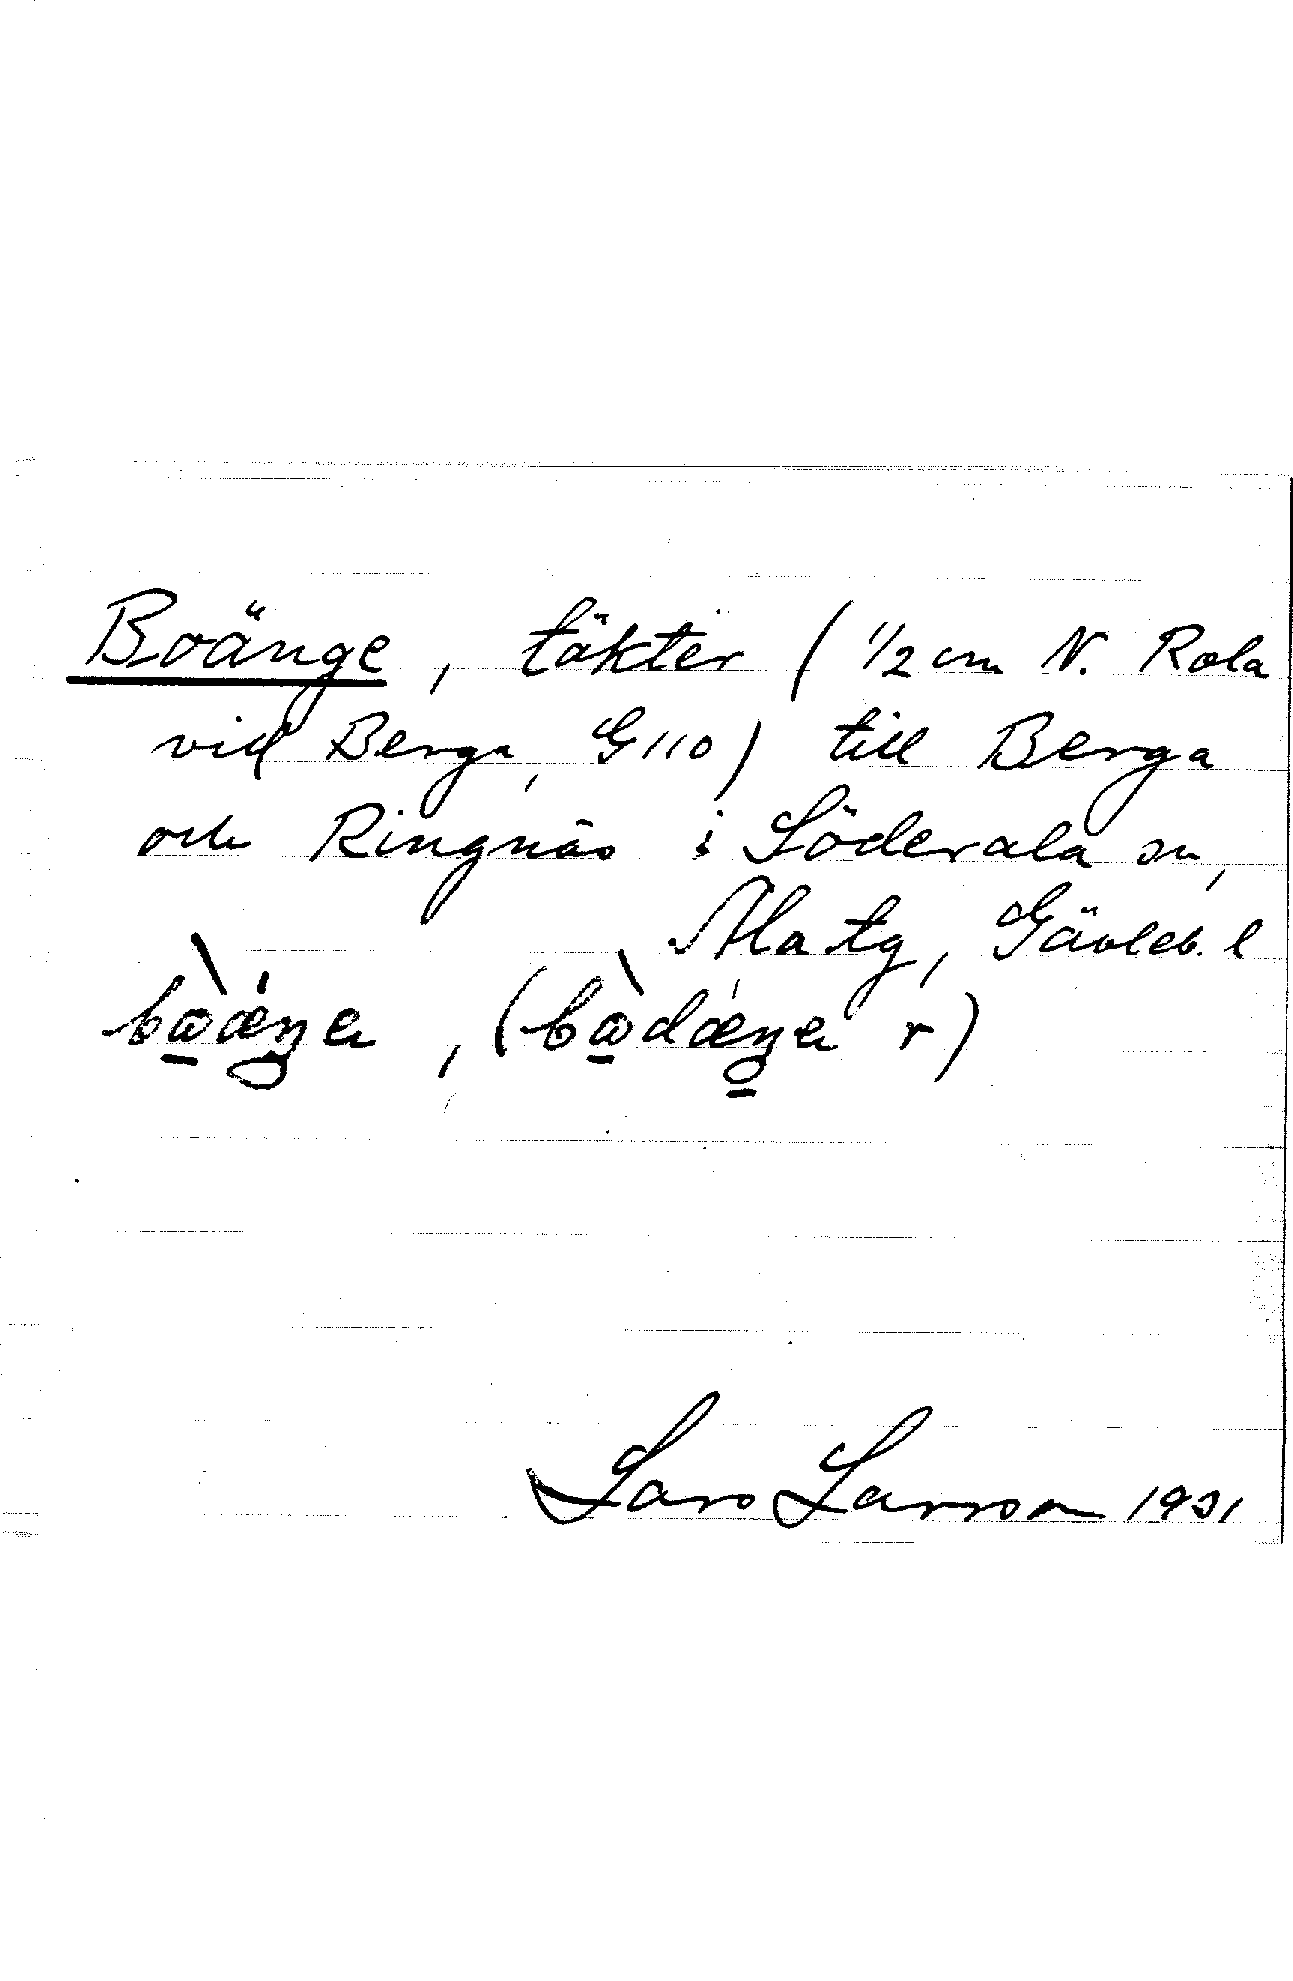 Boänge, täkter (1/2 cm N. Rola
vid Berga, G110) till Berga
och Ringnäs i Söderala sn,
Ala tg, Gävleb. l
Lars Larsson 1931